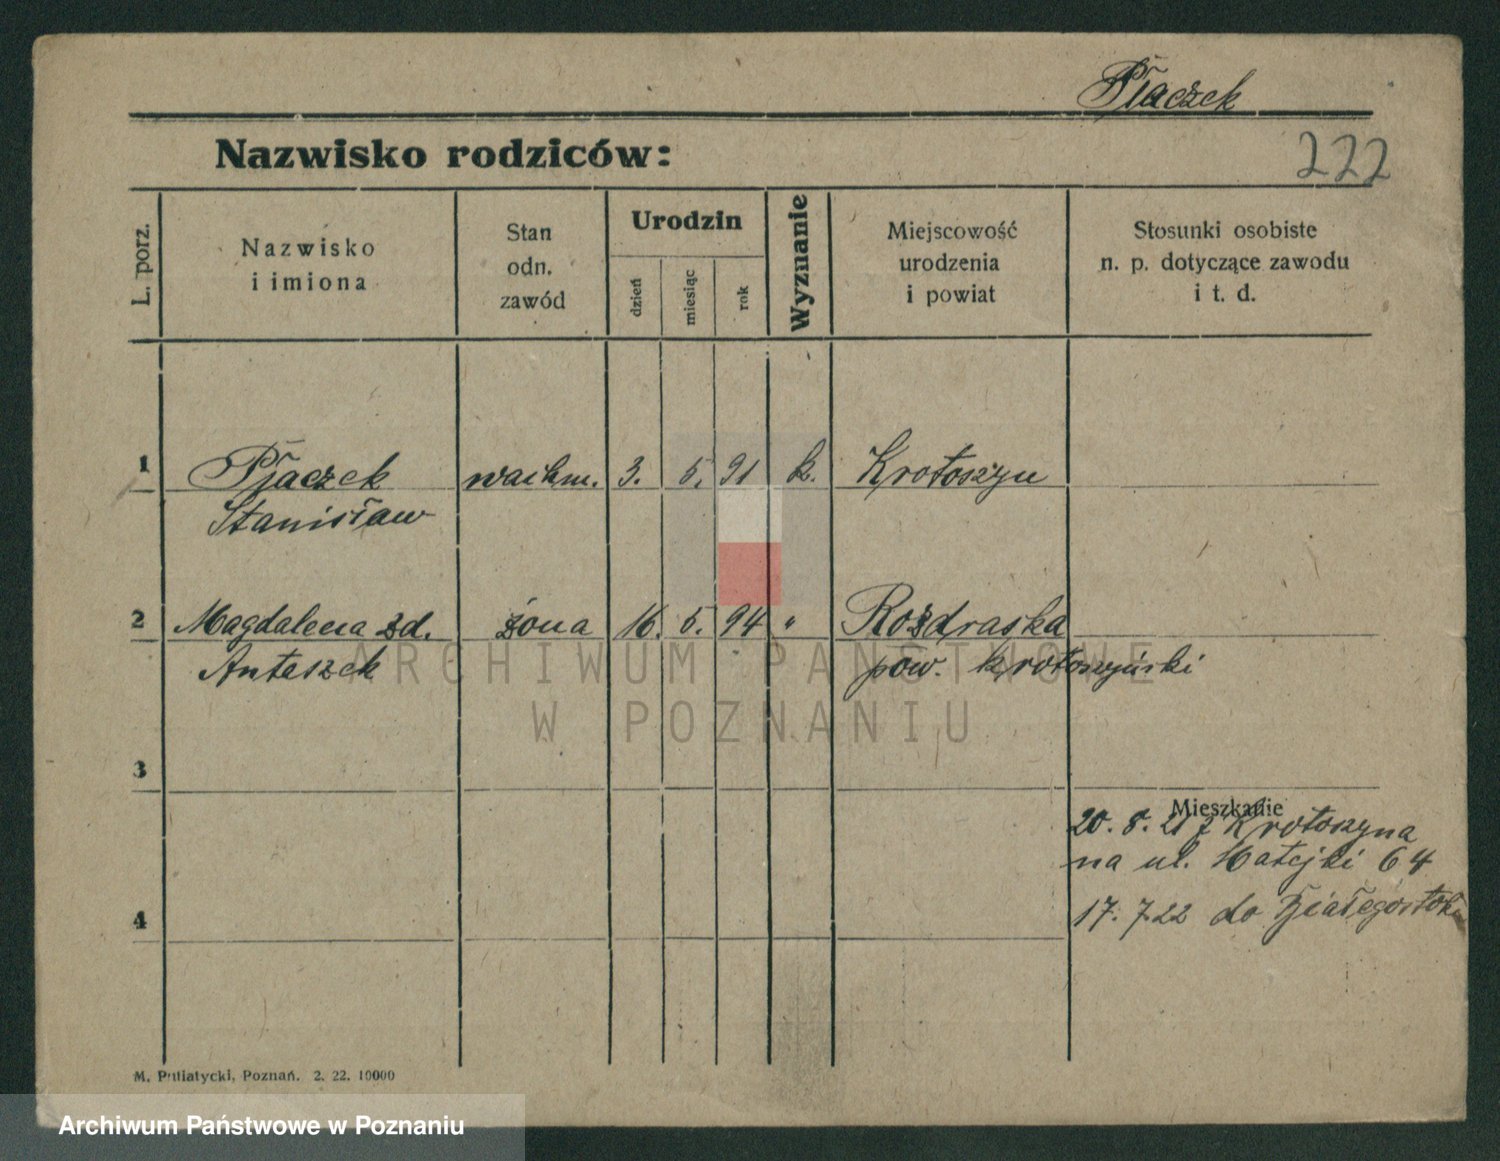 Płaczek
Nazwisko rodziców:
222
L. porz.
Nazwisko
i imiona
Stan
odn.
zawód
Urodzin
dzień
miesiąc
rok
Wyznanie
Miejscowość
urodzenia
i powiat
Stosunki osobiste
n. p. dotyczące zawodu
i t. d.
1 Płaczek wachm. 3. 5. 91 k. Krotoszyn
Stanisław
2 Magdalena zd. żona 16. 5. 94 " Rozdraska
Antoszek pow. krotoszyński
ARCHIWUM PAŃSTWOWE
W POZNANIU
3
Mieszkanie
20. 8. 21 z Krotoszyna
na ul. Matejki 64
4 17. 7.22 do Białegostoku
M. Putiatycki, Poznań. 2. 22. 10000
Archiwum Państwowe w Poznaniu